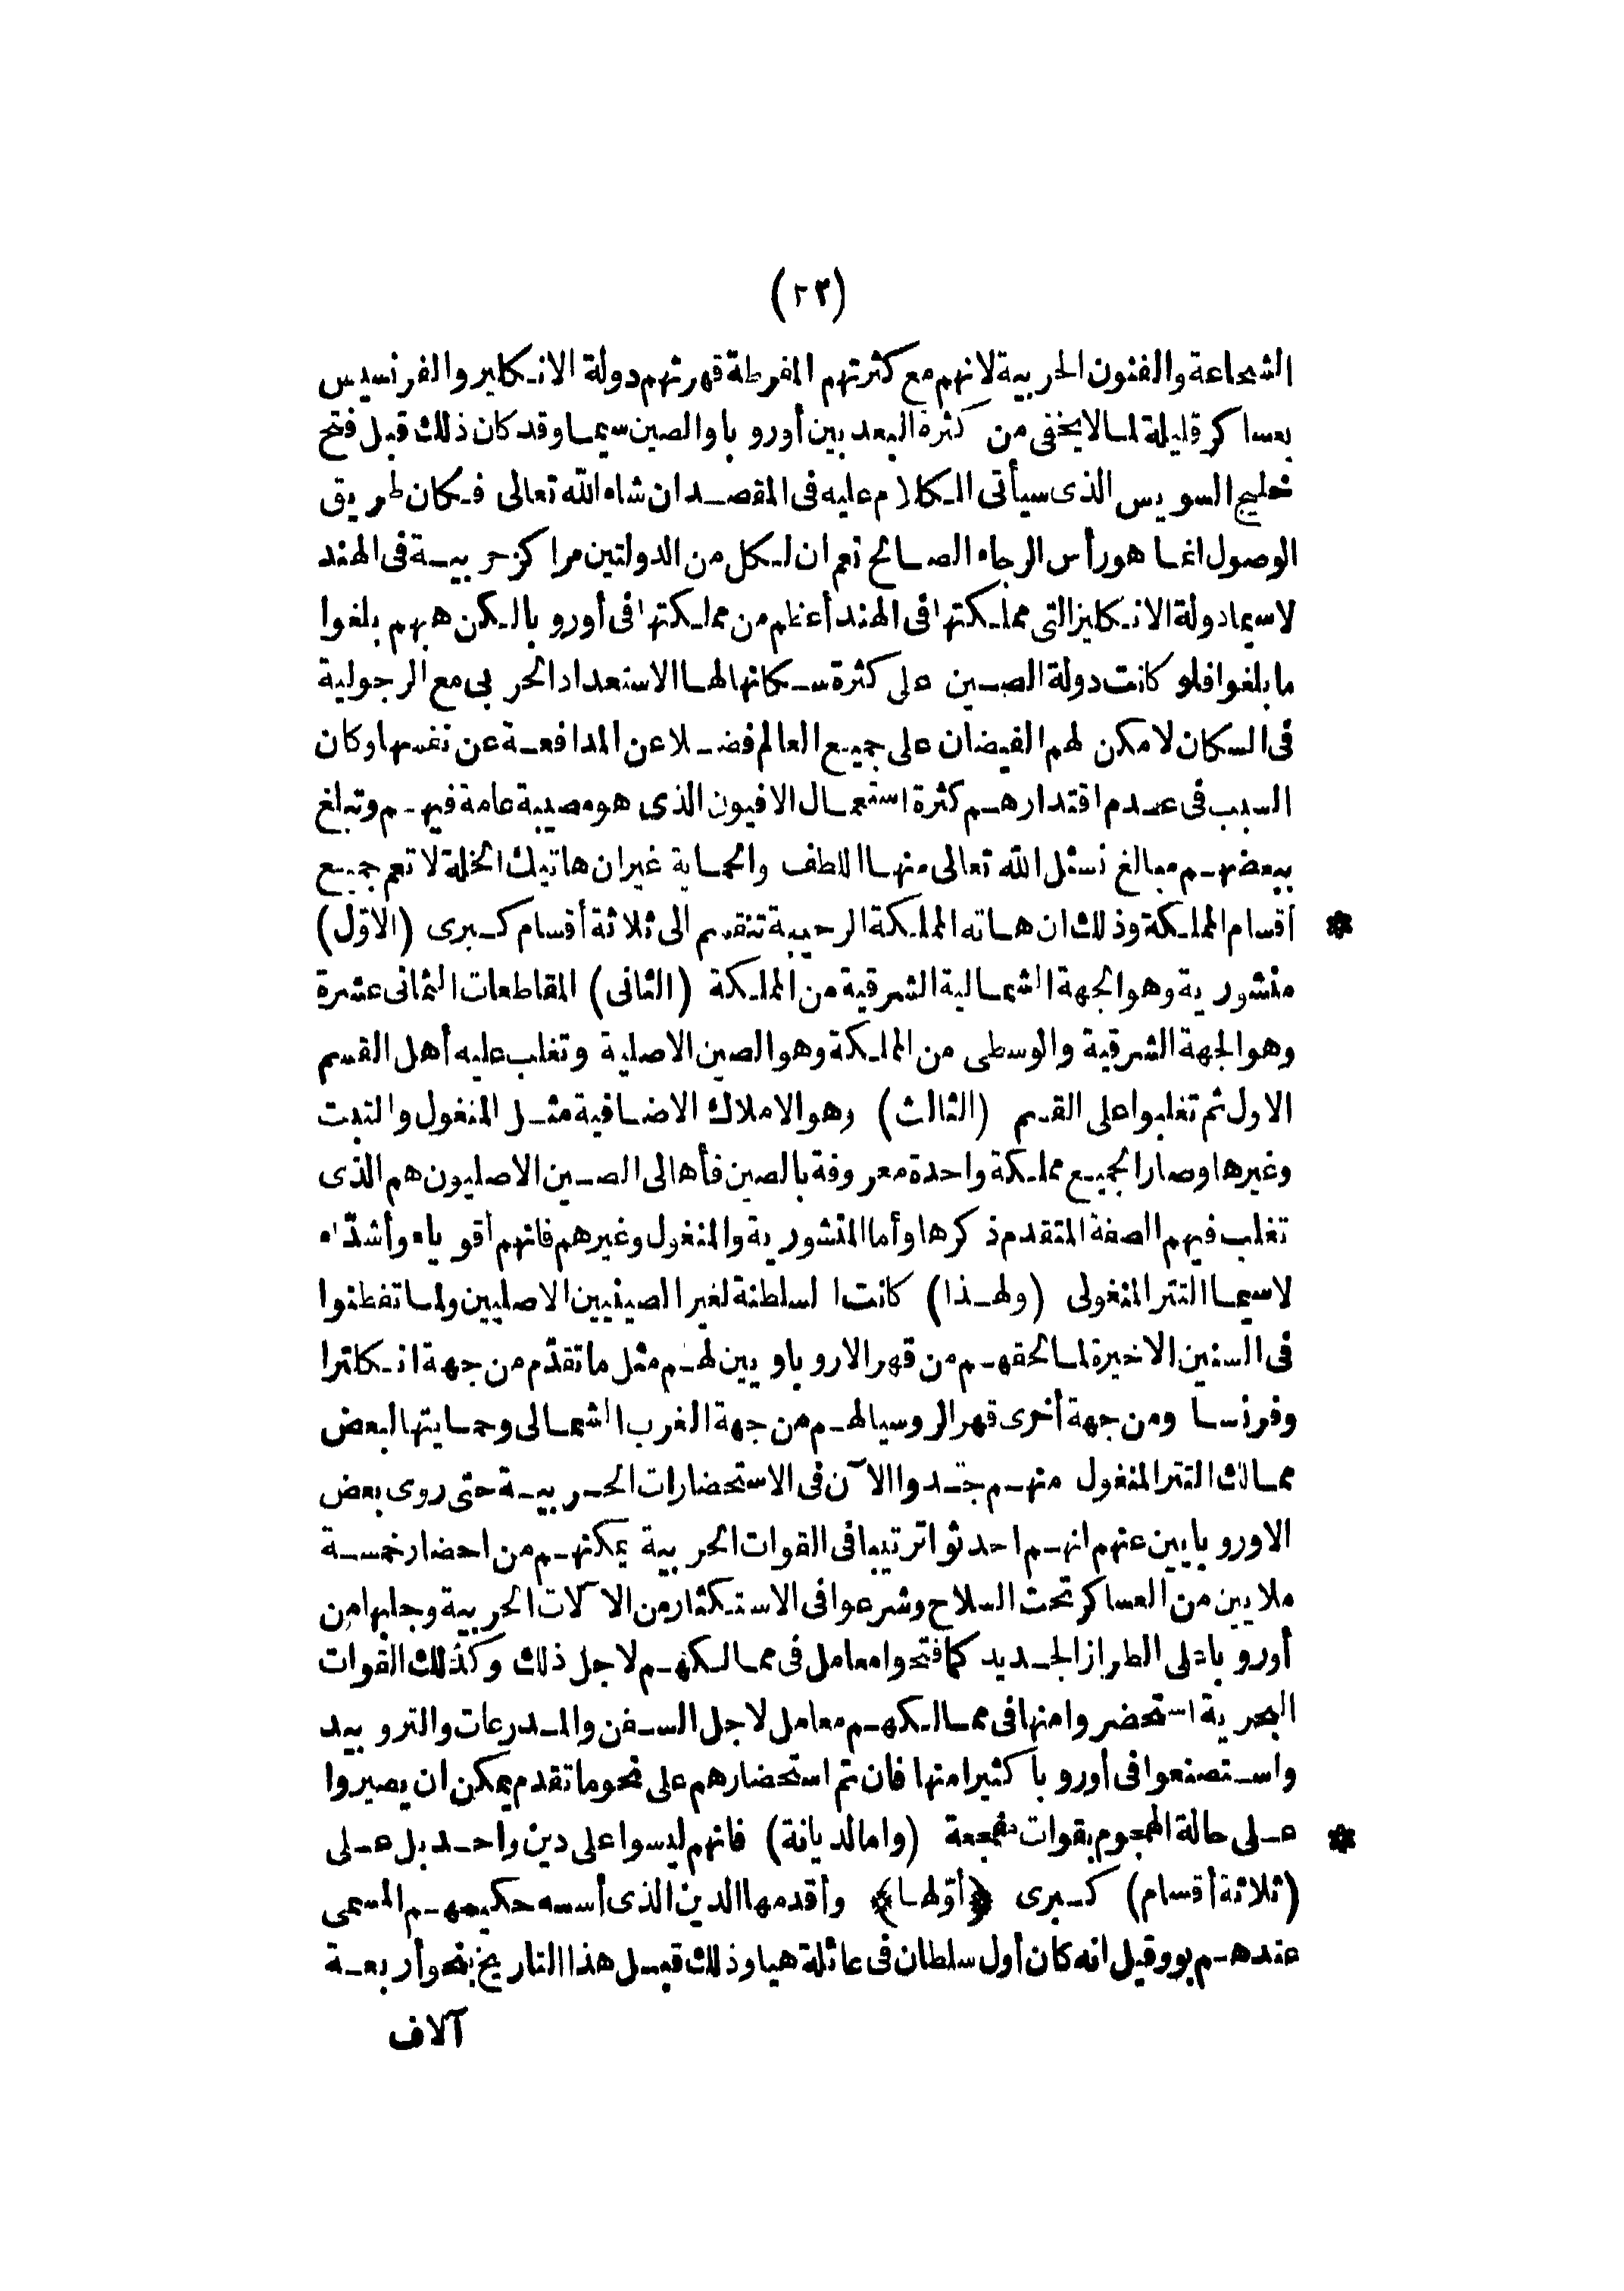 (٢٣)
الشجاعة والفنون الحربية لانهم مع كثرتهم المفرطة قهرتهم دولة الانكليز والفرنسيس
بعساكر قليلة لما لا يخفى من كثرة البعد بين أوروبا والصين سيما وقد كان ذلك قبل فتح
خليج السويس الذى سيأتى الكلام عليه فى المقصد ان شاء الله تعالى فكان طريق
الوصول انما هو رأس الرجاء الصالح نعم ان لكل من الدولتين مراكز حربية فى الهند
لاسيما دولة الانكليز التى مملكتها فى الهند أعظم من مملكتها فى أوروبا لكن هبهم بلغوا
ما بلغوا فلو كانت دولة الصين على كثرة سكانها لها الاستعداد الحربى مع الرجولية
فى السكان لامكن لهم الفيضان على جميع العالم فضلا عن المدافعة عن نفسها وكان
السبب فى عدم اقتدارهم كثرة استعمال الافيون الذى هو مصيبة عامة فيهم وتبلغ
ببعضهم مبالغ نسئل الله تعالى منها اللطف والحماية غير ان هاتيك الخلة لا تعم جميع
* أقسام المملكة وذلك ان هاته المملكة الرحيبة تنقسم الى ثلاثة أقسام كبرى (الاوّل)
منشورية وهو الجهة الشمالية الشرقية من المملكة (الثانى) المقاطعات الثمانى عشرة
وهو الجهة الشرقية والوسطى من المملكة وهو الصين الاصلية وتغلب عليه أهل القسم
الاول ثم تغلبوا على القسم (الثالث) وهو الاملاك الاضافية مثل المنغول والتبت
وغيرها وصار الجميع مملكة واحدة معروفة بالصين فأهالى الصين الاصليون هم الذى
تغلب فيهم الصفة المتقدم ذكرها وأما المنشورية والمنغول وغيرهم فانهم أقوياء وأشدّاء
لاسيما التتر المنغولى (ولهذا) كانت السلطنة لغير الصينيين الاصليين ولما تفطنوا
فى السنين الاخيرة لما لحقهم من قهر الاروباويين لهم مثل ما تقدّم من جهة انكلترا
وفرنسا ومن جهة أخرى قهر الروسيا لهم من جهة الغرب الشمالى وحمايتها لبعض
ممالك التتر المنغول منهم جدوا الآن فى الاستحضارات الحربية حتى روى بعض
الاوروبايين عنهم انهم احدثوا ترتيبا فى القوات الحربية يمكنهم من احضار خمسة
ملايين من العساكر تحت السلاح وشرعوا فى الاستكثار من الآلات الحربية وجلبها من
أوروبا على الطراز الجديد كما فتحوا معامل فى ممالكهم لاجل ذلك وكذلك القوات
البحرية استحضروا منها فى ممالكهم معامل لاجل السفن والمدرعات والتروبيد
واستصنعوا فى أوروبا كثيرا منها فان تم استحضارهم على نحو ما تقدم يمكن ان يصيروا
* على حالة الهجوم بقوات مفجعة (واما الديانة) فانهم ليسوا على دين واحد بل على
(ثلاثة أقسام) كبرى ﴿أوّلها﴾ وأقدمها الدين الذى أسسه حكيمهم المسمى
عندهم بوو قيل انه كان أول سلطان فى عائلة هيا وذلك قبل هذا التاريخ بنحو أربعة
آلاف